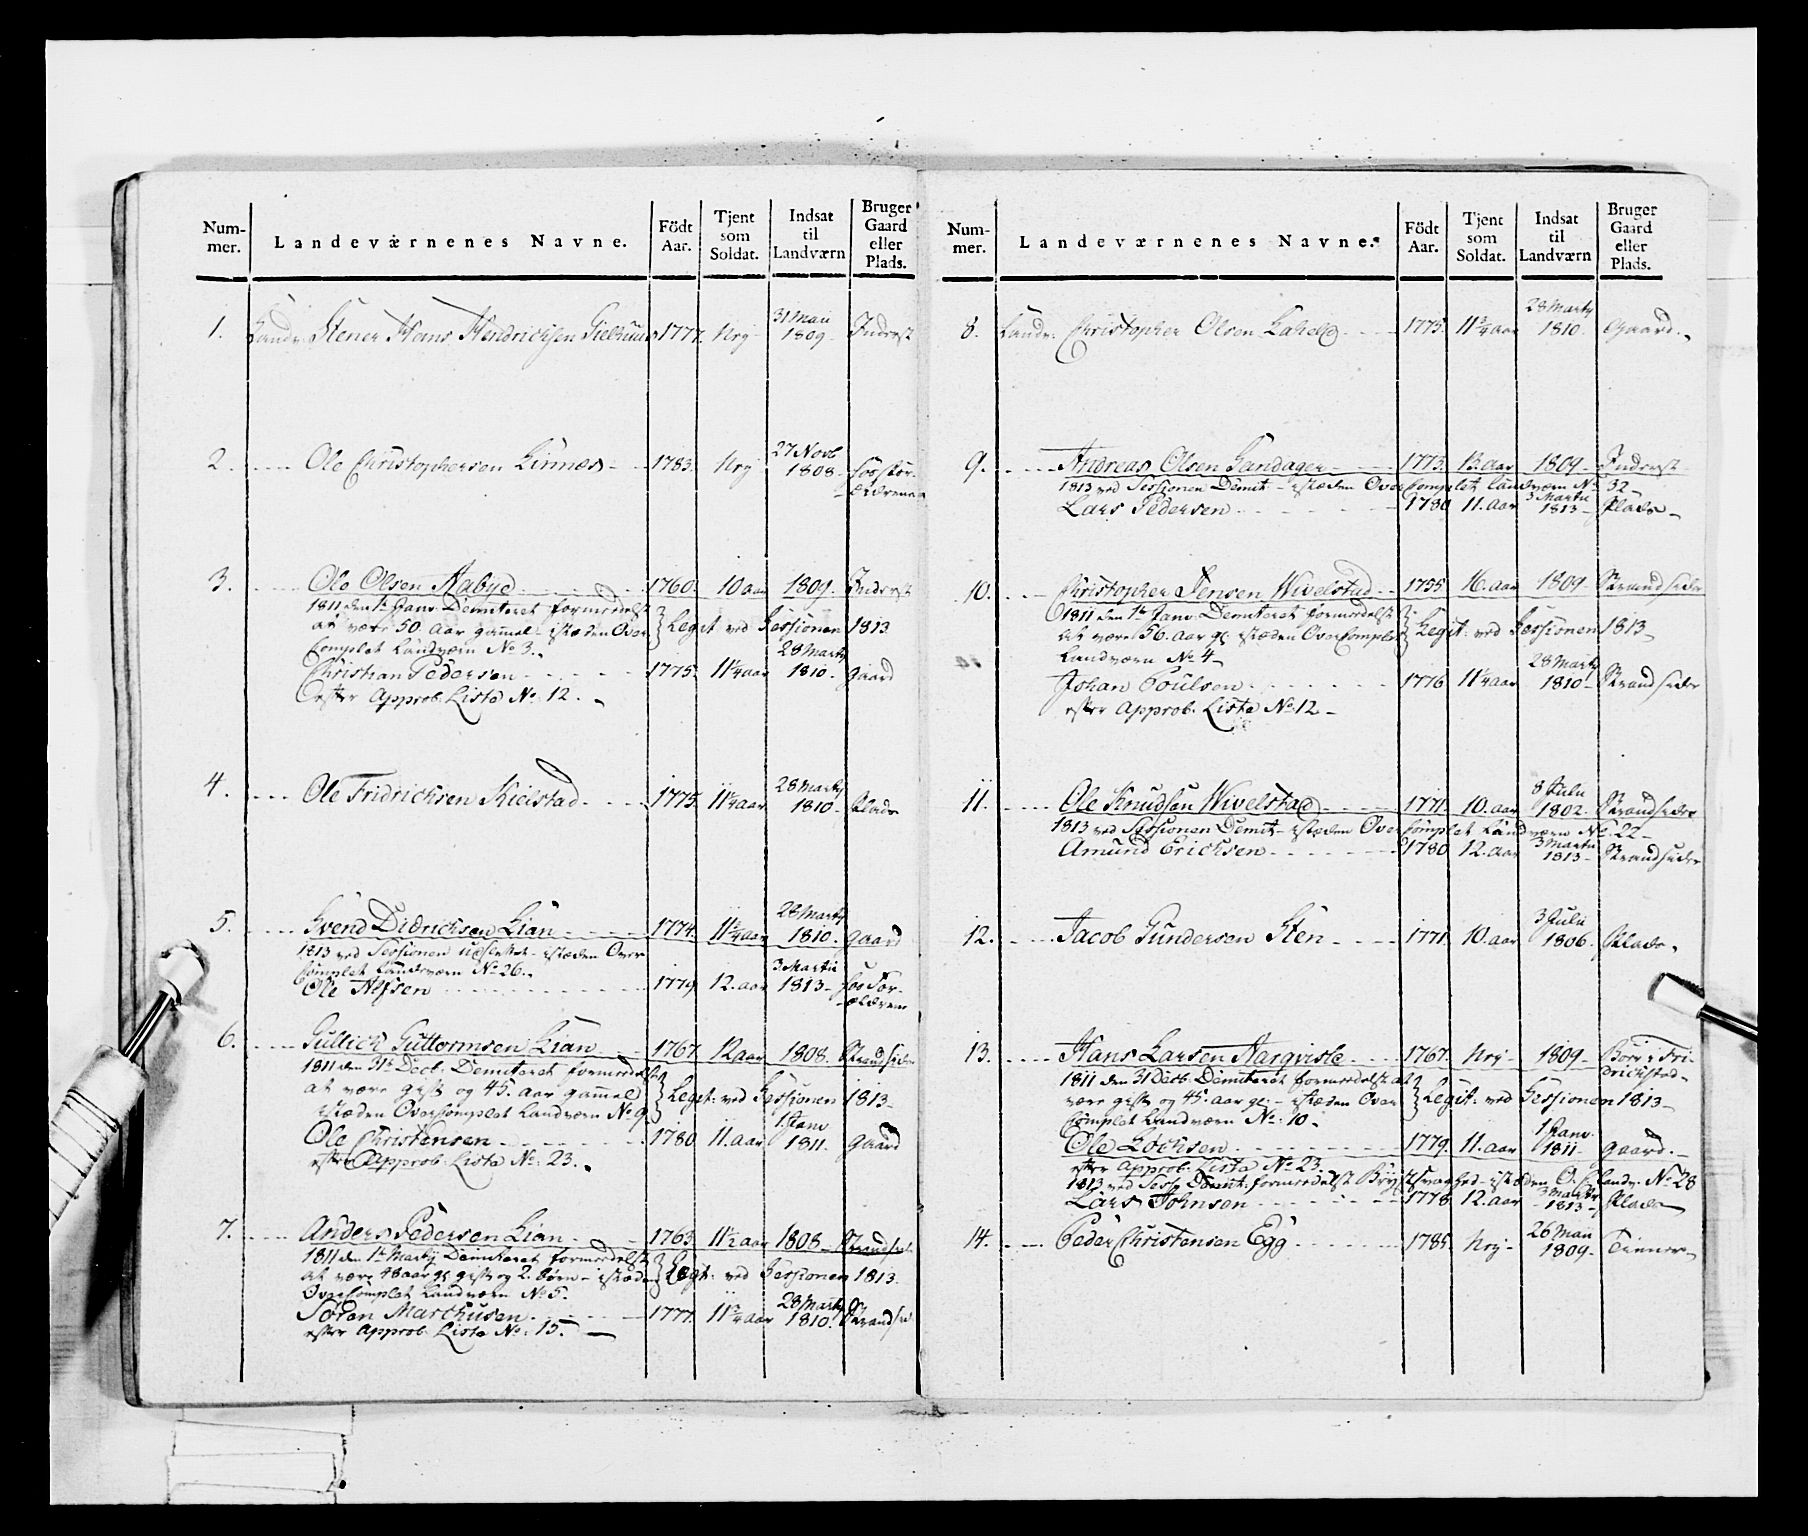 Num-
mer.
Landeværnenes Navne.
Födt
Aar.
Tjent
som
Soldat.
Indsat
til
Landværn
Bruger
Gaard
eller
Plads.
1. Landv: Stener Hans Hendrichsen 1777. Nÿ 31 Maii 1809. Inderst
2. Ole Christophersen Linnes 1783. Nÿ 27 Novb 1808.
3. Ole Olsen Aabye 1760. 10 aar 1809. Inderst
1811 den 1te Janv. Demiteret formedelst
at være 50. Aar gammel - isteden Over
Complet Landværn No. 3.
Legit ved Sessionen 1813
Christian Pedersen 1775. 11 1/4 aar 28 Martij 1810. gaard
efter Approb. Liste No. 12.
4. Ole Fridrichsen Kielstad 1775. 11 1/4 aar 28 Martij 1810. Plads
5. Svend Didrichsen Lian 1774. 11 3/4 aar 28 Martij 1810. gaard
1813 ved Sessionen udslettet - isteden Over
Complet Landeværn No. 26.
Ole Alfsen 1779. 12. aar 3 Martii 1813 - hos For-
ældrene
6. Gullich Guttormsen Lian 1767. 12 aar 1808. Strandsider
1811 den 31te Decb. Demiteret formedelst
at være gift og 45. aar gammel
isteden OverComplet Landværn No. 9
Legit: ved Sessionen 1813
Ole Christensen 1780. 11. aar 1 Janv 1811. gaard
efter Approb. Liste No: 23.
7. Anders Pedersen Lian 1763. 11 1/2 aar 1808 - Strandsid:
1811 den 1te Martij Demiteret formedelst
at være 48 aar gl gift og 2. børn - isteden
OverComplet Landværn No 5.
Legit: ved Sessionen 1813.
Søren Marthusen 1777. 11 3/4 aar 28 Martij 1810. Strandsid:
efter Approb. Liste No: 15.
Num-
mer.
Landeværnenes Navne.
Födt
Aar.
Tjent
som
Soldat.
Indsat
til
Landværn
Bruger
Gaard
eller
Plads.
8. Landv: Christopher Olsen 1775. 11 3/4 aar 28 Martij 1810. Gaard.
9. Andreas Olsen Sandager 1773. 13. aar 1809 - Inderst
1813 ved Sessionen Demit - isteden OverComplet Landværn No. 32
Lars Pedersen 1780 11. aar 3 Martii 1813 - Plads
10. Christopher Jensen Wivelstad 1755 16. aar 1809 - Strandsider
1811 den 1te Janv. Demiteret formedelst
at være 56. aar gl. isteden OverComplet
Landværn No. 4
Legit: ved Sessionen 1813
Johan Poulsen 1776 11 1/4 aar 28 Martij 1810 - Strandsider
efter Approb. Liste No. 12 -
11. Ole Knudsen Wivelstad 1771. 10. aar 8 Julii 1802. Strandsider
1813 ved Sessionen Demit - isteden OverComplet Landværn No: 22 -
Amund Ericksen 1780 12. aar 3 Martii 1813 - Strandsider
12. Jacob Gundersen Sten 1771. 10. aar 3 Julii 1806. Plads
13. Hans Larsen Aarqvisle 1767. Nÿ 1809 - Bor i Fri-
drichstad
1811 den 31 Decb. Demiteret formedelst at
være gift og 45. aar gl: - isteden Over
Complet Landværn No: 10 -
Legit: ved Sessionen 1813
Ole Lochsen 1779. 11. aar 1 Janv. 1811 - gaard.
efter Approb. Liste No. 23.
1813 ved Sess: Demit: formedelst Brystsvaghed - isteden O. C. Landv. No 28
Lars Johnsen 1778 12. aar 3 Martij 1813 - Plads
14. Peder Christensen Egg 1785. Nÿ - 26 Maii 1809 - Tienner